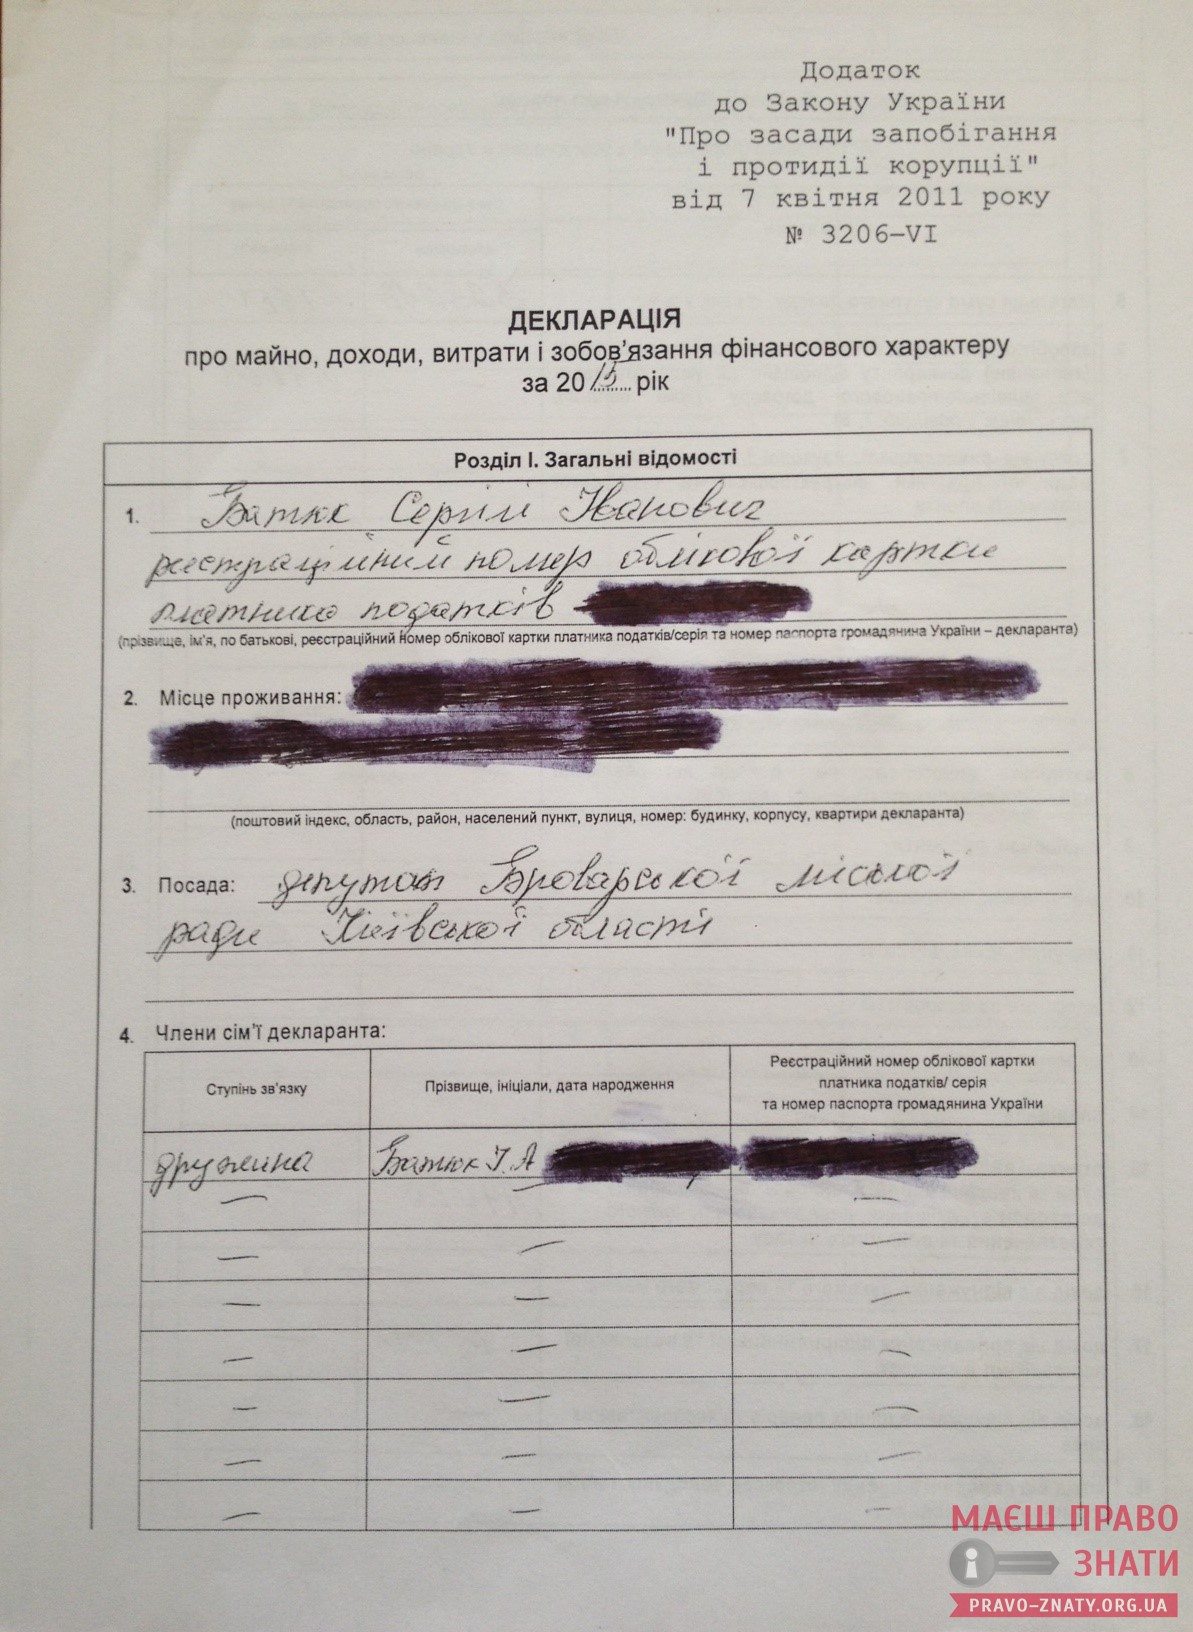 Додаток
до Закону України
"Про засади запобігання
і протидії корупції"
від 7 квітня 2011 року
№ 3206-VI
ДЕКЛАРАЦІЯ
про майно, доходи, витрати і зобов'язання фінансового характеру
за 2015 рік
Розділ І. Загальні відомості
1. Батюк Сергій Іванович
реєстраційний номер облікової картки
платника податків
(прізвище, ім'я, по батькові, реєстраційний номер облікової картки платника податків/серія та номер паспорта громадянина України – декларанта)
2. Місце проживання:
(поштовий індекс, область, район, населений пункт, вулиця, номер: будинку, корпусу, квартири декларанта)
3. Посада: депутат Броварської міської
ради Київської області
4. Члени сім'ї декларанта:
Ступінь зв'язку
Прізвище, ініціали, дата народження
Реєстраційний номер облікової картки
платника податків/ серія
та номер паспорта громадянина України
дружина Батюк Т.А
МАЄШ ПРАВО
ЗНАТИ
PRAVO-ZNATY.ORG.UA